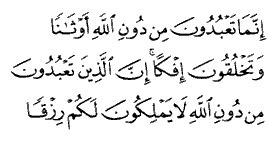 إِنَّمَا تَعْبُدُونَ مِن دُونِ اللَّهِ أَوْثَٰنًا
وَتَخْلُقُونَ إِفْكًا ۚ إِنَّ الَّذِينَ تَعْبُدُونَ
مِن دُونِ اللَّهِ لَا يَمْلِكُونَ لَكُمْ رِزْقًا